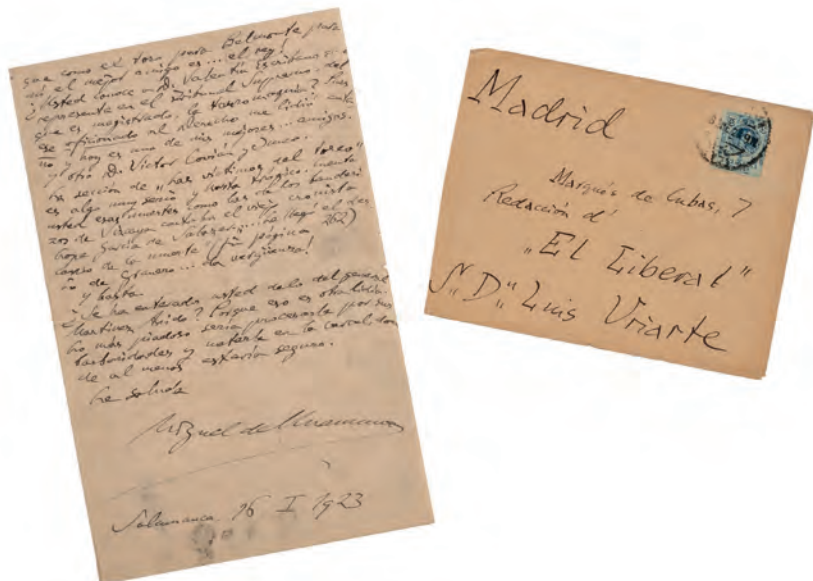 que como el toro para Belmonte para
mí el mejor amigo es... el rey!
¿Usted conoce a D. Valentín Escribano
representa en el Tribunal Supremo, del
que es magistrado, la tauromaquia? Pues
ese aficionado al derecho me lidió
no y hoy es uno de mis mejores... amigos.
y otro D. Víctor Covián y
La sección de "Las víctimas del toreo"
es algo muy serio y hasta trágico. Cuenta
usted esas muertes como las de los banderi
zos de Vizcaya contaba el viejo cronista
Lope García de Salazar... le llegó el des
canso de la muerte (página 262)
de Granero... da vergüenza!
y basta
¿Se ha enterado usted de lo del general
Martínez Anido? Porque eso es otra lidia.
Lo más piadoso sería procesarle por sus
barbaridades y meterle en la cárcel, don
de al menos estaría seguro.
Le saluda
Miguel de Unamuno
Salamanca 16 I 1923
Madrid
Marqués de Cubas, 7
Redacción d'
"El Liberal"
S. D. Luis Uriarte